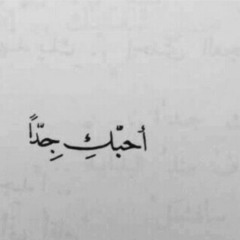 أحبّكِ جِدّاً